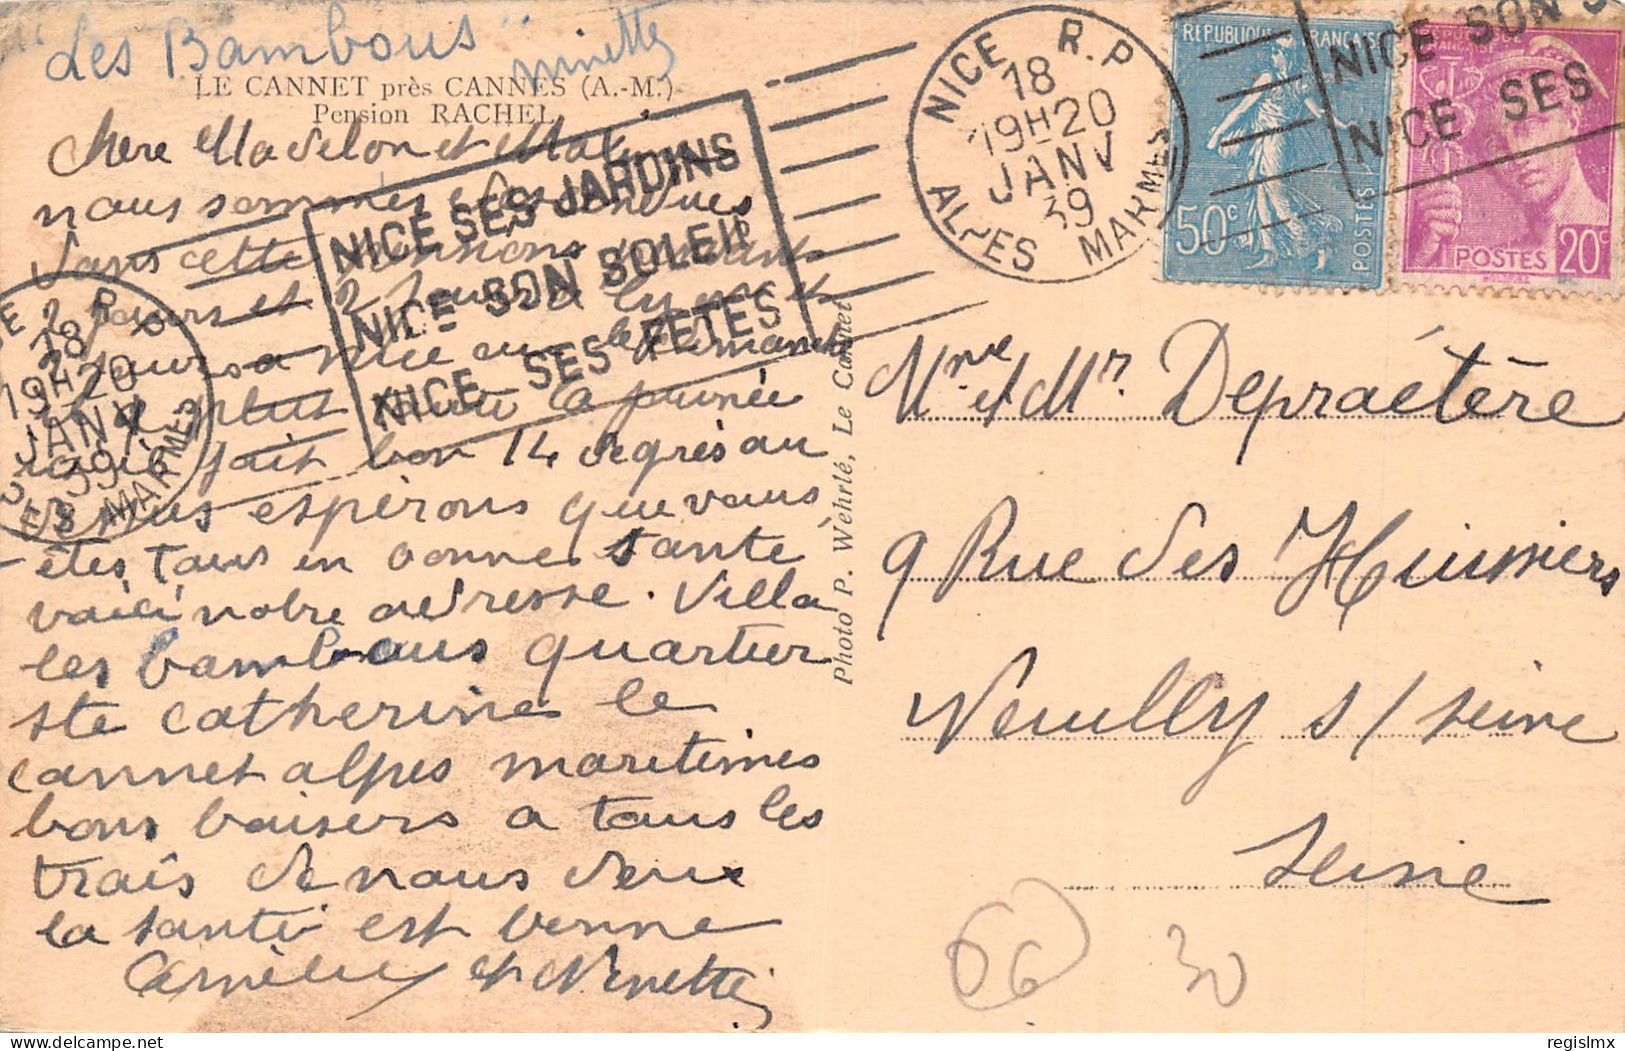 Les Bambous
ninette
LE CANNET près CANNES (A.-M.)
Pension RACHEL
chere Madelon et
nous sommes descendues
dans cette
jours et 2 jours a
jours a Nice
il pleut la journée
fait bon 14 degrès au
nous espérons que vous
êtes tous en bonne sante
voici notre adresse. Villa
les bambous quartier
ste catherine le
cannet alpes maritimes
bons baisers a tous les
trois de nous deux
la santé est bonne
et Ninette
NICE SES JARDINS
NICE SON SOLEIL
NICE SES FETES
NICE R.P
18
19H20
JANV
39
ALPES MARMES
18
19H20
JANV
39
MARMES
REPUBLIQUE FRANÇAISE
50c
POSTES
REPUBLIQUE
FRANÇAISE
POSTES 20c
NICE SON
NICE SES
Photo P. Wehrlé, Le Cannet
Mme et Mr Depraetère
9 Rue des Huissiers
Neuilly s/ seine
Seine
66
30
delcampe.net
regislmx